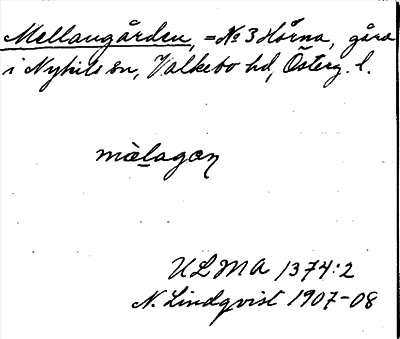 Mellangården, = No 3 Hörna, gård
i Nykils sn, Valkebo hd, Österg. l.
mälagaŋ
ULMA 1374:2
N. Lindqvist 1907-08